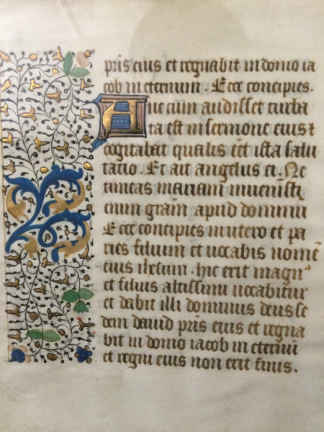 pris eius et regnabit in domo ia
cob in eternum. Ecce concipies.
Que cum audisset turba
ta est in sermone eius et
cogitabat qualis eet ista salu
tatio. Et ait angelus ei. Ne
timeas maria inuenisti
enim gram apud dominu
Ecce concipies in utero et pa
ries filium et uocabis nome
eius ihesum. hic erit magn9
et filius altissimi uocabitur
et dabit illi dominus deus se
dem dauid pris eius et regna
bit in domo iacob in eternu
et regni eius non erit finis.